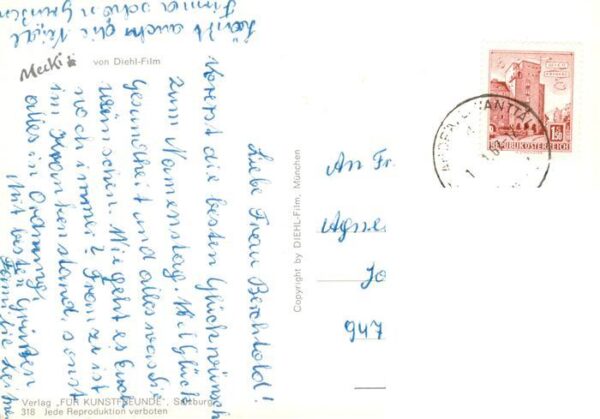 Mecki
von Diehl-Film
Liebe Frau Berchtold!
Vorerst die besten Glückwünsche
zum Namenstag. Viel Glück
Gesundheit und alles was Sie
wünschen. Wie geht es Euch
noch immer? Franz ist
im Krankenstand, sonst
alles in Ordnung.
Mit besten Grüßen
Familie
An Fr.
Agne
Jo
947
REPUBLIK ÖSTERREICH
1.50
Copyright by DIEHL-Film, München
Verlag „FÜR KUNSTFREUNDE", Salzburg
318 Jede Reproduktion verboten